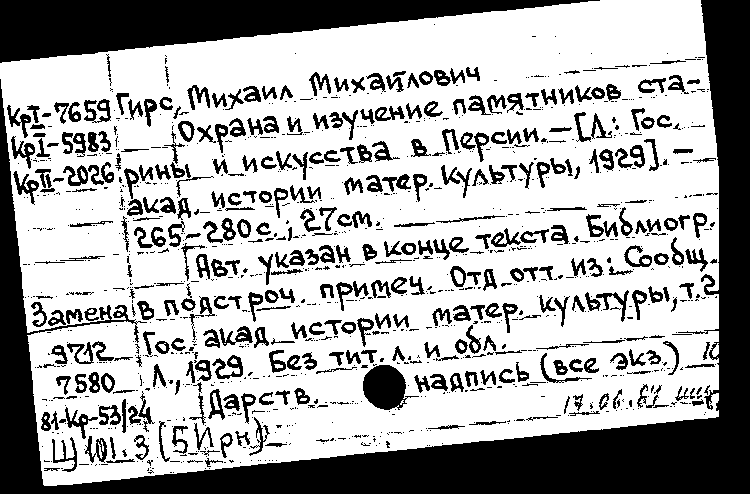 КрI-7659 Гирс, Михаил Михайлович
КрI-5983 Охрана и изучение памятников ста-
КрII-2026 рины и искусства в Персии. — [Л.: Гос.
акад. истории матер. культуры, 1929]. —
265-280 с.; 27 см.
Авт. указан в конце текста. Библиогр.
Замена в подстроч. примеч. Отд. отт. из: Сообщ.
9712 Гос. акад. истории матер. культуры, т. 2
7580 Л., 1929. Без тит. л. и обл.
81-Кр-53/24 Дарств. надпись (все экз.) 10
Щ 101.3 (5Ирн) 17.06.81